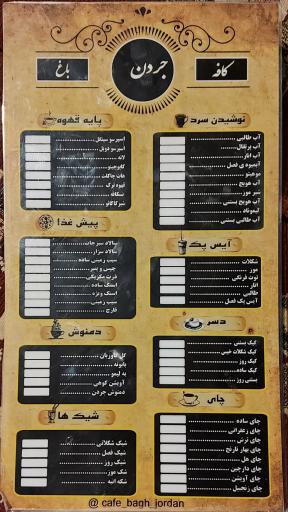 کافه
جردن
باغ
نوشیدنی سرد
آب طالبی
آب پرتقال
آب انار
آبمیوه ی فصل
موهیتو
آب هویج
شیر موز
آب هویج بستنی
لیموناد
آب طالبی بستنی
آیس پک
شکلات
موز
توت فرنگی
انار
طالبی
آیس پک فصل
دسر
کیک بستنی
کیک شکلات خیس
کیک روز
کیک ساده
بستنی روز
چای
چای ساده
چای زعفرانی
چای ترش
چای بهار نارنج
چای هل
چای دارچین
چای آویشن
چای زنجبیل
پایه قهوه
اسپرسو سینگل
اسپرسو دوبل
لاته
کاپوچینو
هات چاکلت
قهوه ترک
نسکافه
شیرکاکائو
پیش غذا
سالاد سبزیجات
سالاد سزار
سیب زمینی ساده
چیپس و پنیر
ذرت مکزیکی
اسنک ساده
اسنک ویژه
سیب زمینی
قارچ
دمنوش
گل گاوزبان
بابونه
به لیمو
آویشن کوهی
دمنوش جردن
شیک ها
شیک شکلاتی
شیک فصل
شیک روز
شیک موز
شیک انبه
@ cafe_bagh_jordan